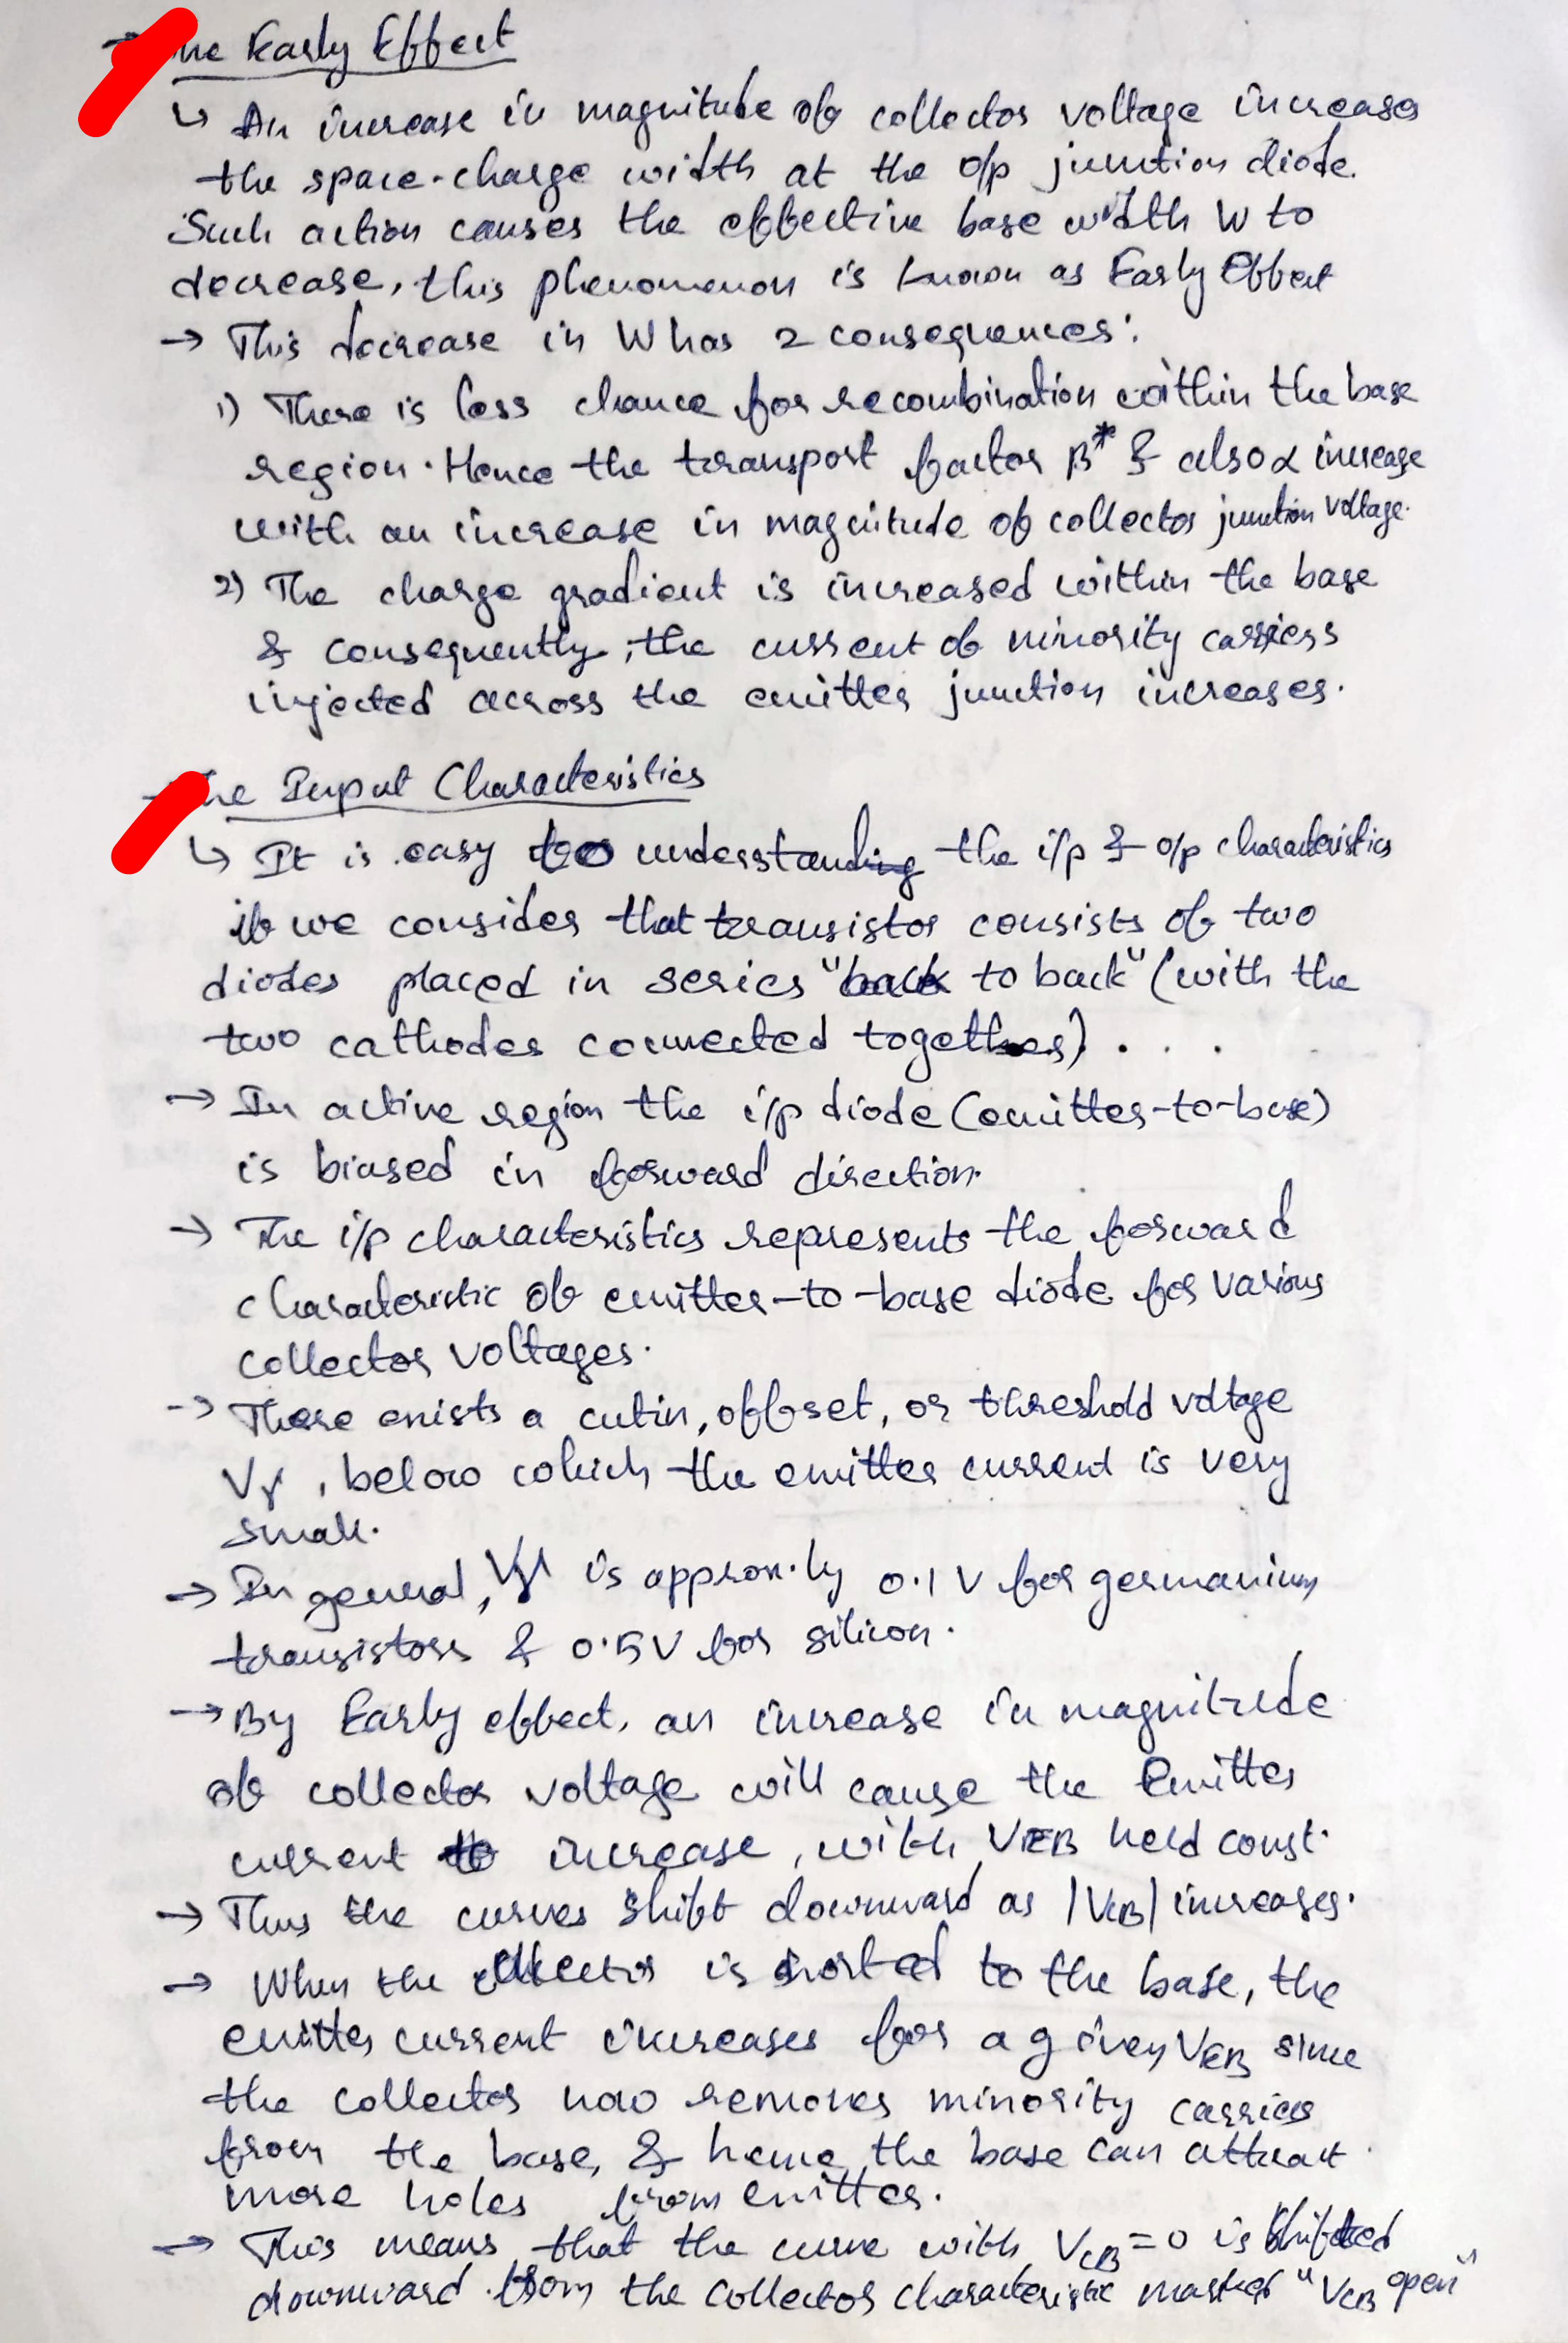 The Early Effect
↳ An increase in magnitude of collector voltage increases
the space-charge width at the o/p junction diode.
Such action causes the effective base width W to
decrease, this phenomenon is known as Early Effect
→ This decrease in W has 2 consequences:
1) There is less chance for recombination within the base
region. Hence the transport factor β* & also α increase
with an increase in magnitude of collector junction voltage.
2) The charge gradient is increased within the base
& consequently, the current of minority carriers
injected across the emitter junction increases.
→ The Input Characteristics
↳ It is easy to understanding the i/p & o/p characteristics
if we consider that transistor consists of two
diodes placed in series "back to back" (with the
two cathodes connected together). . . .
→ In active region the i/p diode (emitter-to-base)
is biased in forward direction.
→ The i/p characteristics represents the forward
characteristic of emitter-to-base diode for various
collector voltages.
→ There exists a cutin, offset, or threshold voltage
Vγ, below which the emitter current is very
small.
→ In general, Vγ is approx.ly 0.1 V for germanium
transistors & 0.5V for silicon.
→ By Early effect, an increase in magnitude
of collector voltage will cause the Emitter
current to increase, with VEB held const.
→ Thus the curves shift downward as |VCB| increases.
→ When the collector is shorted to the base, the
emitter current increases for a given VEB since
the collector now removes minority carriers
from the base, & hence the base can attract
more holes from emitter.
→ This means that the curve with VCB = 0 is shifted
downward from the collector characteristic marked "VCB open"